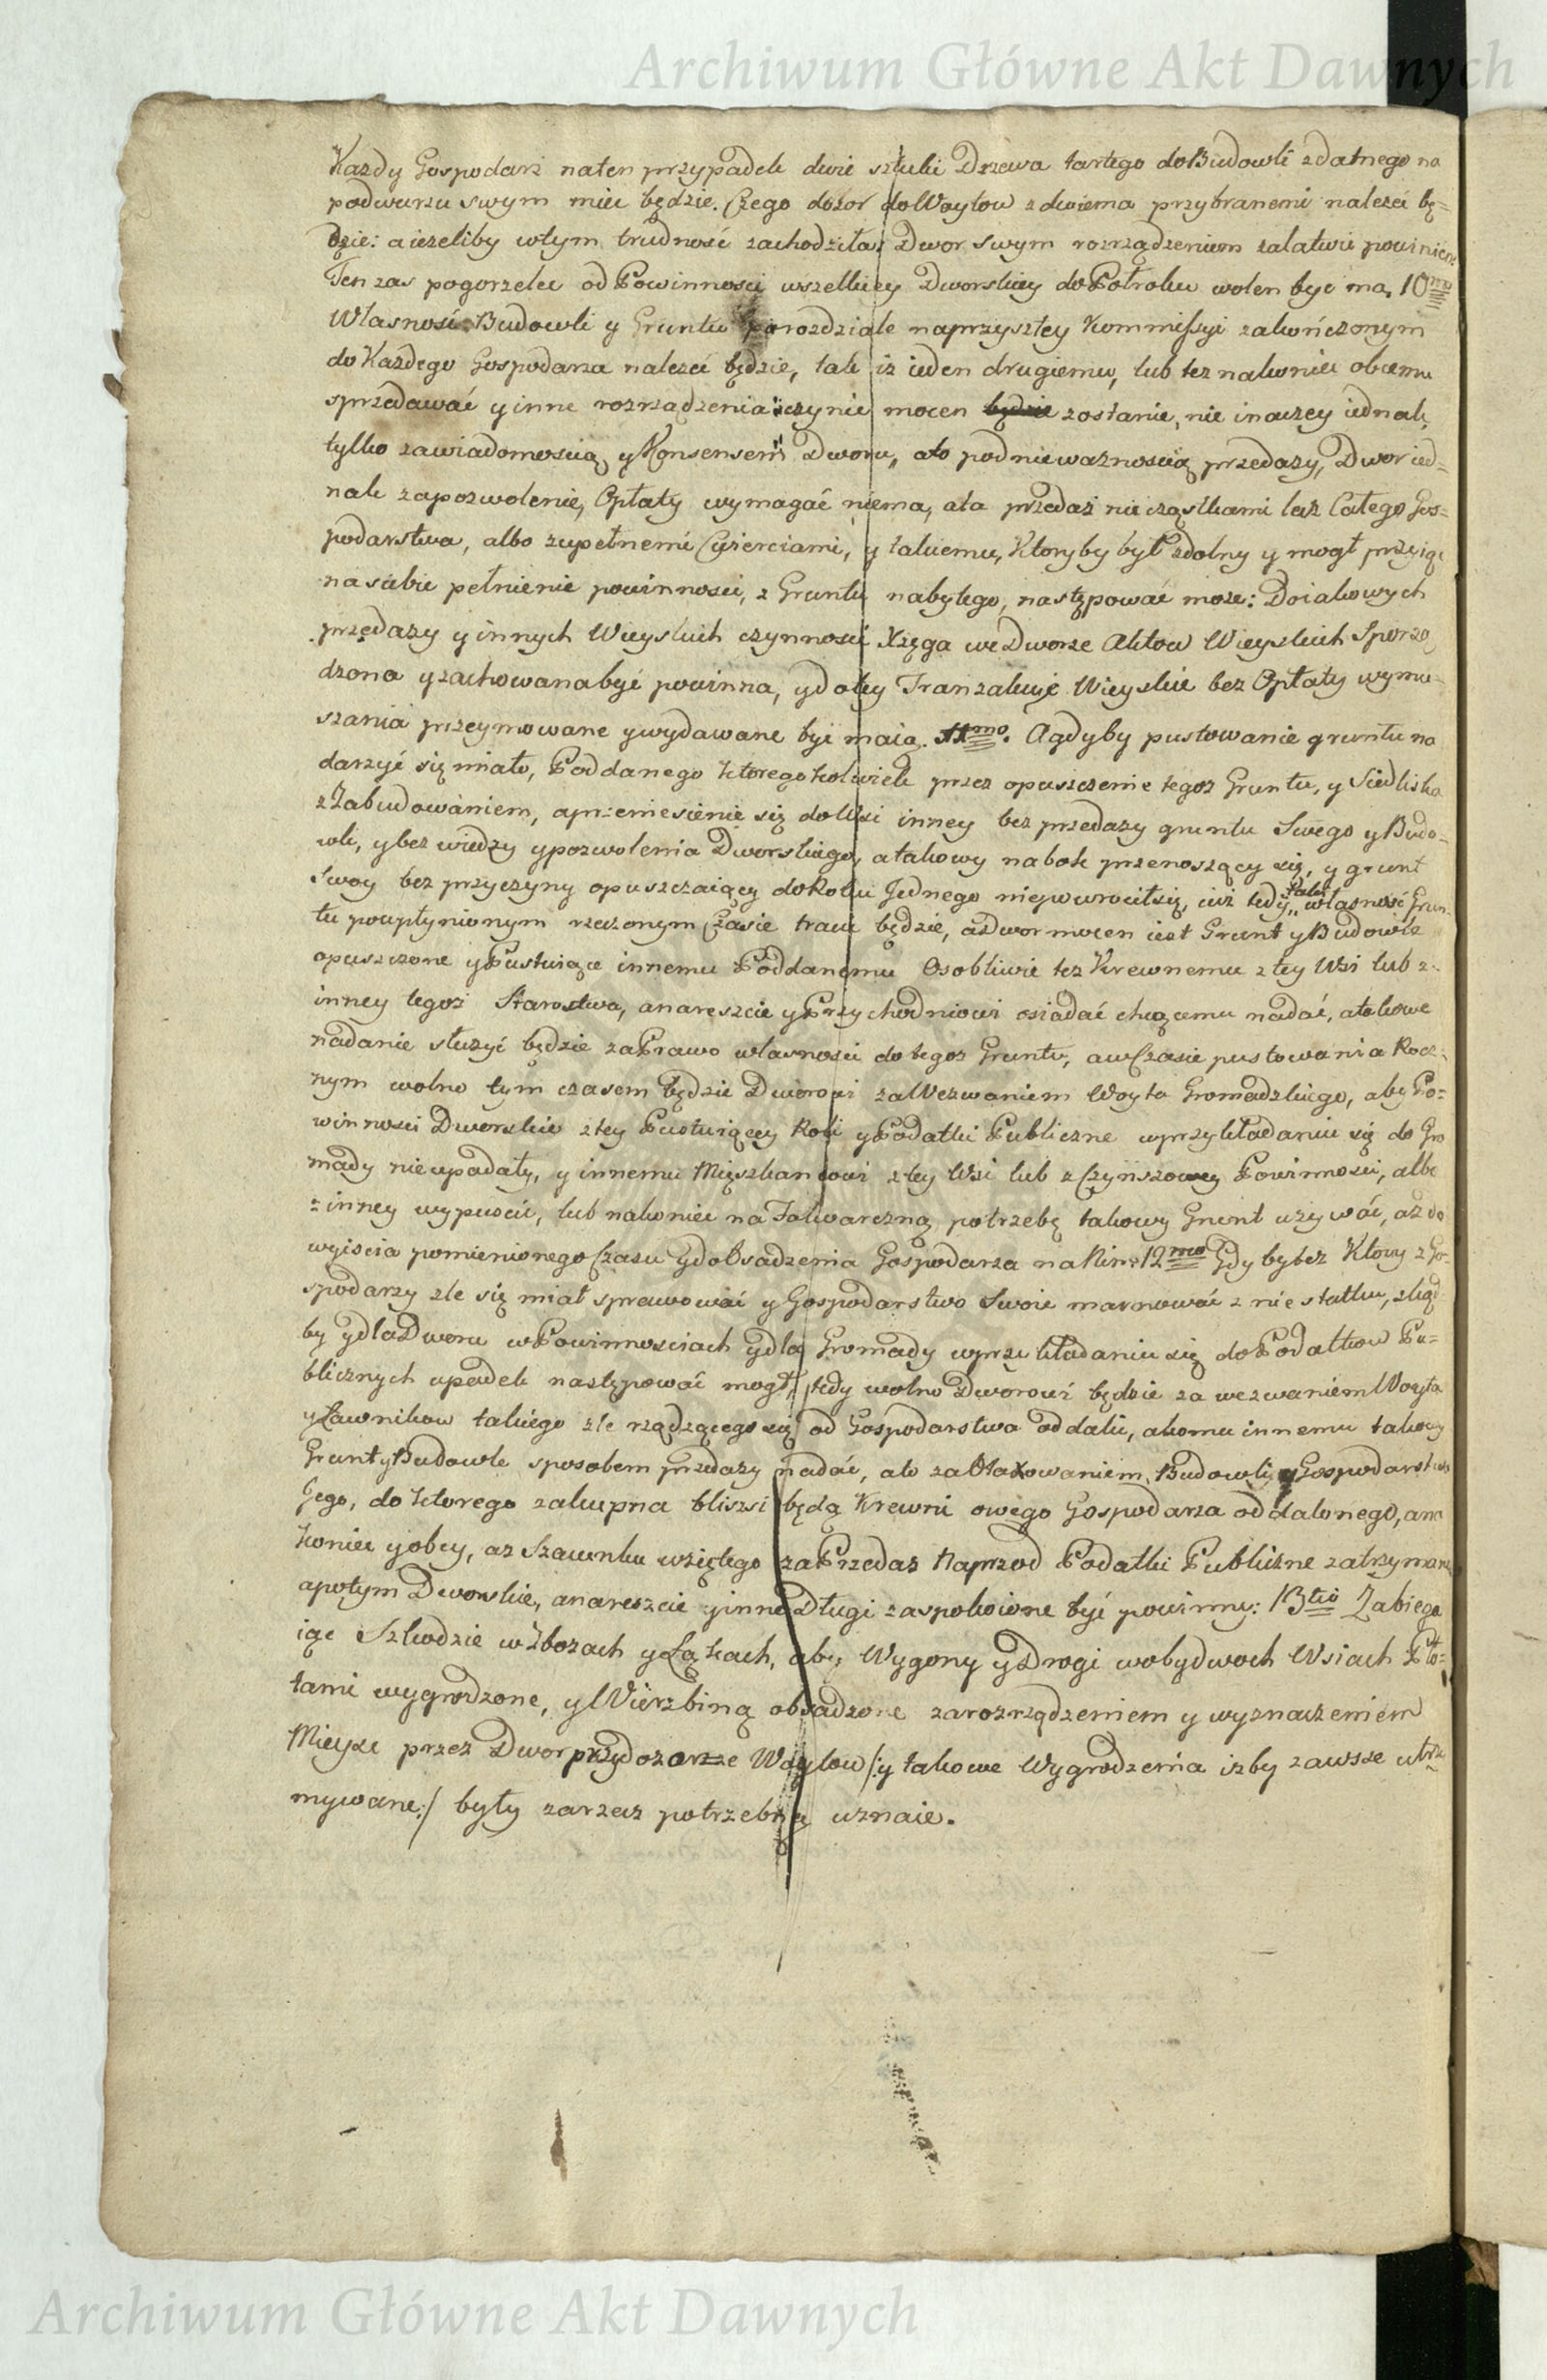 Archiwum Główne Akt Dawnych
Kazdy Gospodarz naten przypadek dwie sztuki Drzewa tartego do Budowli zdatnego na
podworzu swym mieć będzie. Czego dozor do Woytow z dwiema przybranemi nalezeć bę=
dzie: a iezeliby wtym trudność zachodziła, Dwor swym rozrządzeniem załatwić powinien
Ten zas pogorzelec od Powinnosci wszelkiey Dworskiey do Potroku wolen być ma. 10mo
Własność Budowli y Gruntu po rozdziale naprzyszłey Kommissyi zakończonym
do Kazdego Gospodarza nalezeć będzie, tak iz ieden drugiemu, lub tez nakoniec obcemu
sprzedawać y inne rozrządzenia czynić mocen będzie zostanie, nie inaczey iednak,
tylko zawiadomoscią y Konsensem Dworu, ato pod niewaznoscią przedazy, Dwor ied=
nak zapozwolenie, Opłaty wymagać niema, ata przedaż nie cząstkami lecz Całego Gos=
podarstwa, albo zupełnemi Cwierciami, y takiemu, Ktoryby był zdolny y mogł przyiąć
na siebie pełnienie powinnosci, z Gruntu nabytego, następować moze: Do iakowych
przedazy y innych Wieyskich czynnosci Xięga we Dworze Aktow Wieyskich Sporzą
dzona y zachowana być powinna, y do tey Tranzakcye Wieyskie bez Opłaty wymu=
szania przeymowane y wydawane być maią. 11mo. A gdyby pustowanie gruntu na
darzyć się miało, Poddanego Ktoregokolwiek przez opuszczenie tegoz Gruntu, y Siedliska
z Zabudowaniem, a przeniesienie się do Wsi inney bez przedazy gruntu Swego y Budo=
wli, y bez wiedzy y pozwolenia Dworskiego, a takowy na bok przenoszący się, y grunt
Swoy bez przyczyny opuszczaiący do Roku Jednego niepowrociłsię, iuż tedy własność Grun=
tu poupłynionym rzeczonym Czasie tracić będzie, a Dwor mocen iest Grunt y Budowle
opuszczone y Pustuiące innemu Poddanemu Osobliwie tez Krewnemu z tey Wsi lub z
inney tegoż Starostwa, anareszcie y Przychodniowi osiadać chcącemu nadać, a takowe
nadanie słuzyć będzie za Prawo własnosci do tegoz Gruntu, aw Czasie pustowania Rocz=
nym wolno tym czasem będzie Dworowi za Wezwaniem Woyta Gromadzkiego, aby Po=
winnosci Dworskie z tey Pustuiącey Roli y Podatki Publiczne w przykładaniu się do Gro
mady nieupadały, y innemu Mięszkancowi z tey Wsi lub z Czynszowey Powinnosci, albo
z inney wypuscić, lub nakoniec na Folwarczną potrzebę takowy Grunt uzywać, az do
wyiscia pomienionego Czasu y do Osadzenia Gospodarza na Nim. 12mo Gdy by tez Ktory z Go=
spodarzy zle się miał sprawować y Gospodarstwo Swoie marnować z nie statku, zkąd
by y dla Dworu w Powinnosciach y dla Gromady w przykładaniu się do Podatkow Pu=
blicznych upadek następować mogł, tedy wolno Dworowi będzie za wezwaniem Woyta
y Ławnikow takiego zle rządzącego się od Gospodarstwa oddalić, a komu innemu takowy
Grunt y Budowle sposobem przedazy nadać, ato za Otaxowaniem Budowli y Gospodarstwa
Jego, do Ktorego zakupna bliższi będą Krewni owego Gospodarza oddalonego, ana
koniec y obcy, az Szacunku wziętego za Przedaz Naprzod Podatki Publiczne zatrzymane
apotym Dworskie, anareszcie y inne Długi zaspokoione być powinny: 13tio Zabiega
iąc Szkodzie w Zbozach y Łąkach, aby Wygony y Drogi wobydwoch Wsiach Pło=
tami wygrodzone, y Wierzbiną obsadzone zarozrządzeniem y wyznaczeniem
Mieysc przez Dwor przydozorze Woytow /:y takowe Wygrodzenia izby zawsze utrzy
mywane:/ były zarzecz potrzebną uznaie.
Archiwum Główne Akt Dawnych